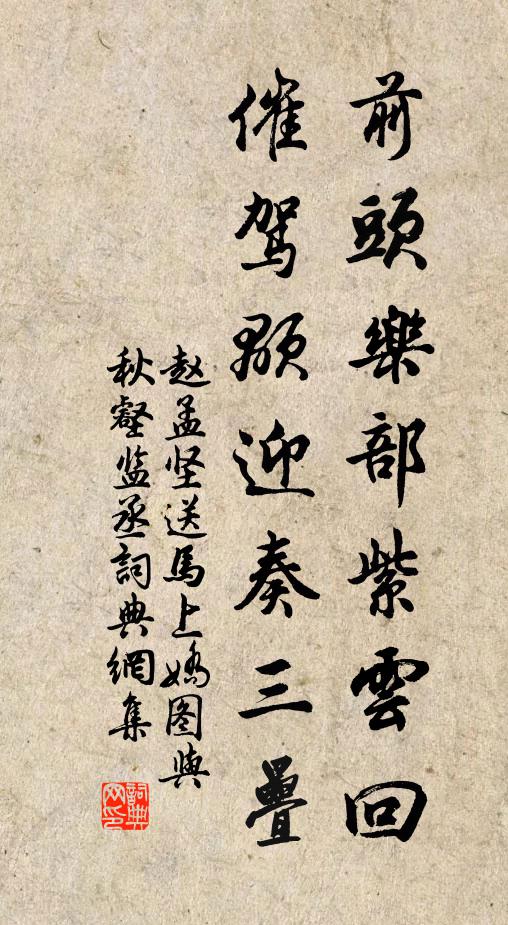 前頭樂部紫雲回
催駕顒迎奏三疊
赵孟坚送馬上嬌图與
秋壑监丞詞典網集
詞典网印